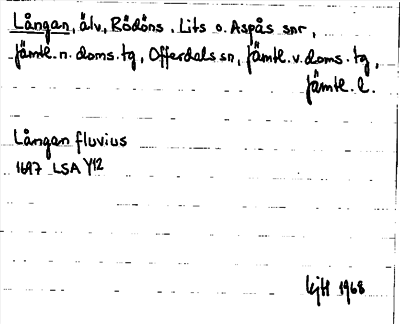 Långan, älv, Rödöns, Lits o. Aspås snr,
Jämtl. n. doms. tg, Offerdals sn, Jämtl. v. doms. tg,
Jämtl. l.
Långan fluvius
1697 LSA Y12
KjH 1968